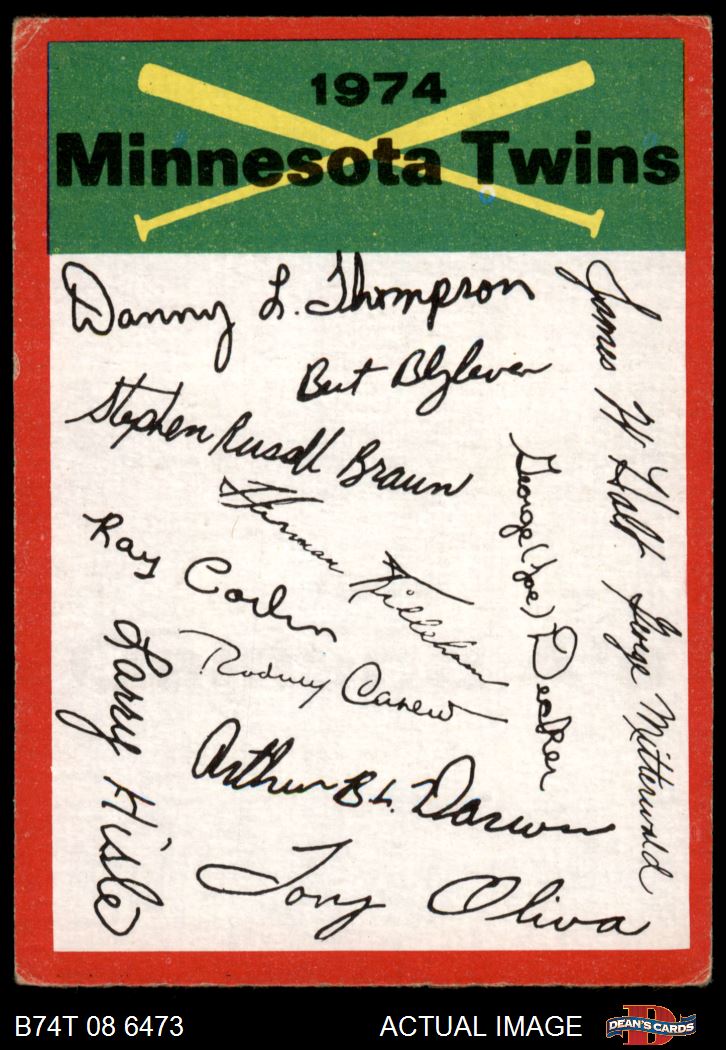 1974
Minnesota Twins
Danny L. Thompson
James W Holt
Bert Blyleven
Stephen Russell Braun
George (Joe) Decker
Herman Killebrew
Ray Corbin
George Mitterwald
Larry Hisle
Rodney Carew
Arthur B L. Darwin
Tony Oliva
B74T 08 6473
ACTUAL IMAGE
D
DEAN'S CARDS